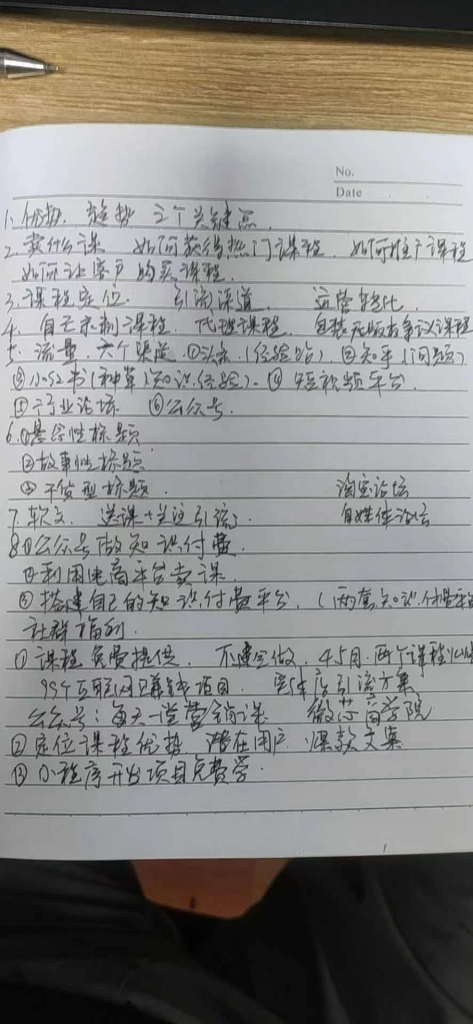 No.
Date
1. 优势. 趋势 三个关键点.
2. 卖什么课 如何获得热门课程. 如何推广课程
如何让客户购买课程.
3. 课程定位. 引流渠道. 运营转化.
4. 自己录制课程. 代理课程. 包装无版权争议课程
五. 流量. 六个渠道 ①头条(经验哈). ②知乎(问题)
③小红书(种草)知识.经验). ④ 短视频平台.
⑤行业论坛 ⑥公众号.
6.①悬念性标题
②故事性标题
③干货型标题. 淘宝论坛
7. 软文. 送课+关注引流. 自媒体论坛
8.①公众号做知识付费
②利用电商平台卖课.
③搭建自己的知识付费平台. (两套知识付费平台
社群福利.
① 课程免费提供. 不建仓做. 4.5月.两个课程
99个互联网赚钱项目. 引流方案
公众号: 每天一堂营销课 微 商学院
② 定位课程优势 潜在用户 爆款文案
③ 小程序开发项目免费学.